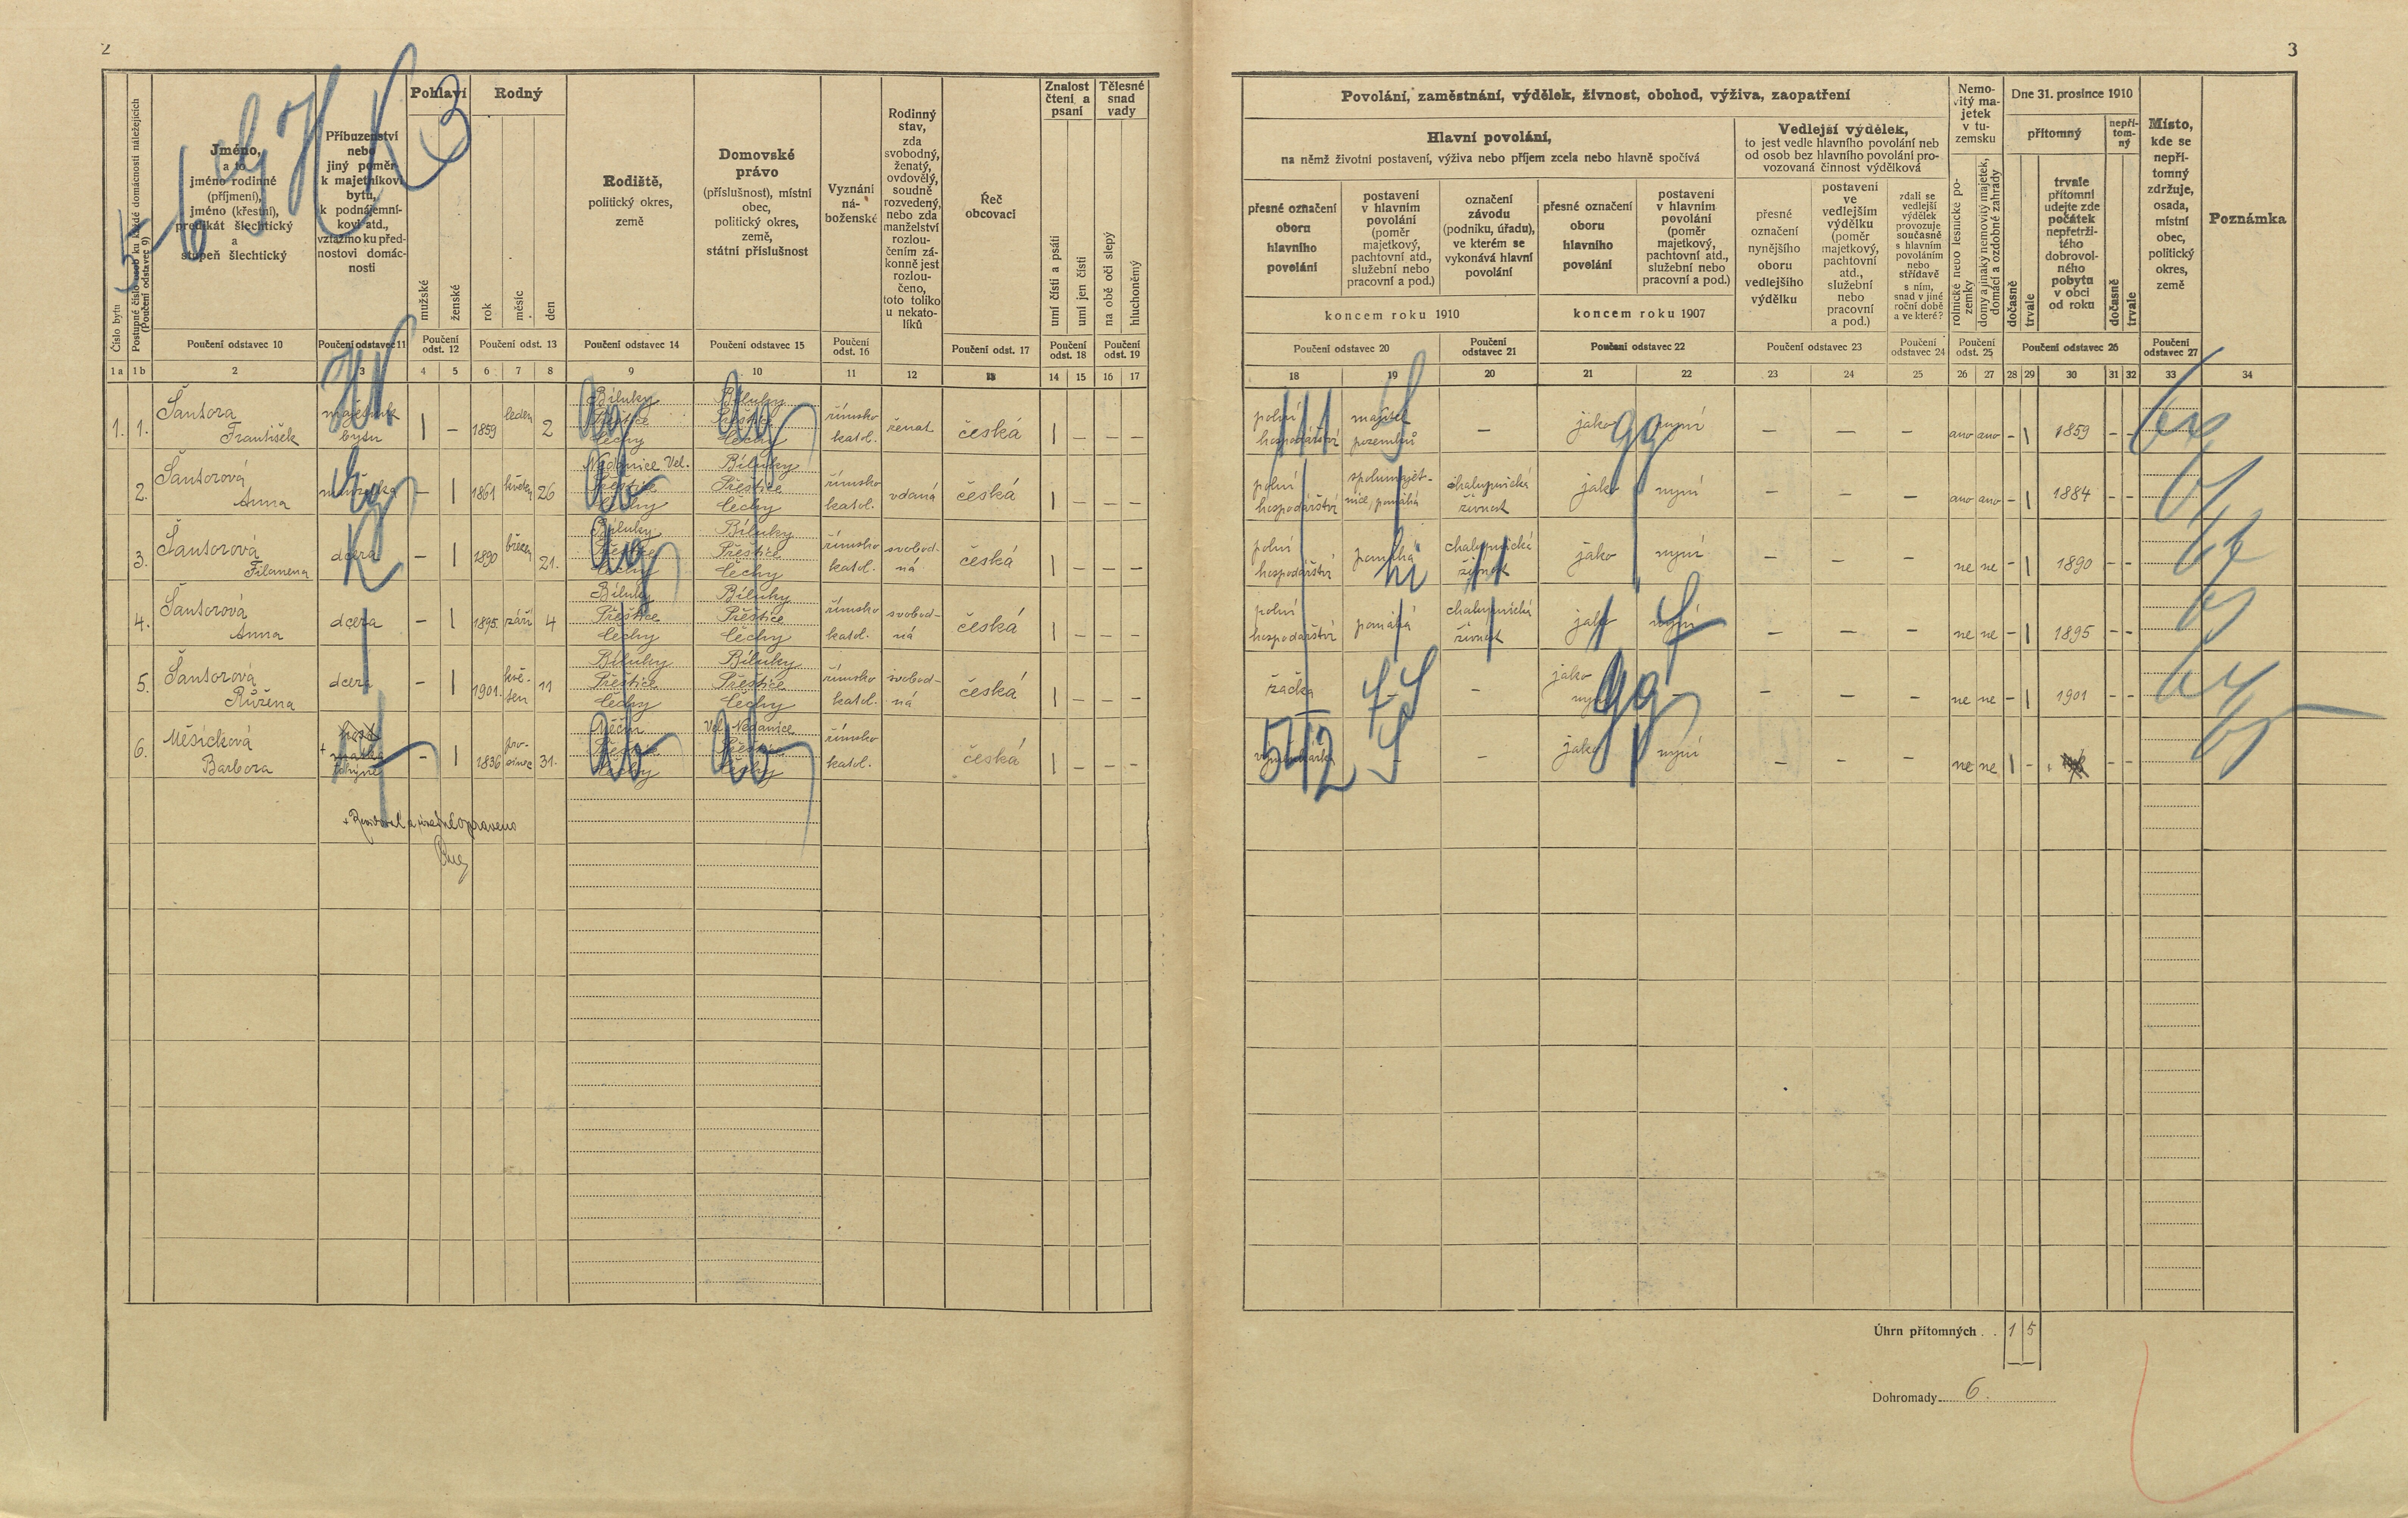 2
Číslo bytu
Postupné číslo osob ku každé domácnosti náležejících
(Poučení odstavec 9)
Jméno,
a to
jméno rodinné
(příjmení),
jméno (křestní),
predikát šlechtický
a
stupeň šlechtický
Příbuzenství
nebo
jiný poměr
k majetníkovi
bytu,
k podnájemní-
kovi atd.,
vztažmo ku před-
nostovi domác-
nosti
Pohlaví
mužské
ženské
Rodný
rok
měsíc
den
Rodiště,
politický okres,
země
Domovské
právo
(příslušnost), místní
obec,
politický okres,
země,
státní příslušnost
Vyznání
ná-
boženské
Rodinný
stav,
zda
svobodný,
ženatý,
ovdovělý,
soudně
rozvedený,
nebo zda
manželství
rozlou-
čením zá-
konně jest
rozlou-
čeno,
toto toliko
u nekato-
líků
Řeč
obcovací
Znalost
čtení a
psaní
umí čísti a psáti
umí jen čísti
Tělesné
snad
vady
na obě oči slepý
hluchoněmý
Poučení odstavec 10
Poučení odstavec 11
Poučení
odst. 12
Poučení odst. 13
Poučení odstavec 14
Poučení odstavec 15
Poučení
odst. 16
Poučení odst. 17
Poučení
odst. 18
Poučení
odst. 19
1 a 1 b 2 3 4 5 6 7 8 9 10 11 12 13 14 15 16 17
1. 1. Šantora
František
majetník
bytu
| – 1859 leden 2
Bíluky
Přeštice
Čechy
Bíluky
Přeštice
Čechy
římsko
katol.
ženat
česká | – – –
2. Šantorová
Anna
manželka
– | 1861 květen 26
Nedanice Vel.
Přeštice
Čechy
Bíluky
Přeštice
Čechy
římsko
katol.
vdaná
česká | – –
3. Šantorová
Filomena
dcera
– | 1890 březen 21.
Bíluky
Přeštice
Čechy
Bíluky
Přeštice
Čechy
římsko
katol.
svobod-
ná
česká | – – –
4. Šantorová
Anna
dcera
– | 1895. září 4
Bíluky
Přeštice
Čechy
Bíluky
Přeštice
Čechy
římsko
katol.
svobod-
ná
česká | – – –
5. Šantorová
Růžena
dcera
– | 1901. kvě-
ten 11
Bíluky
Přeštice
Čechy
Bíluky
Přeštice
Čechy
římsko
katol.
svobod-
ná
česká | – – –
6. Měsíčková
Barbora
+ matka
– | 1836 pro-
sinec 31.
Přeštice
Čechy
Vel. Nedanice
Přeštice
Čechy
římsko
katol.
česká | – – –
+ Revidoval a úředně opraveno
3
Povolání, zaměstnání, výdělek, živnost, obchod, výživa, zaopatření
Hlavní povolání,
na němž životní postavení, výživa nebo příjem zcela nebo hlavně spočívá
přesné označení
oboru
hlavního
povolání
postavení
v hlavním
povolání
(poměr
majetkový,
pachtovní atd.,
služební nebo
pracovní a pod.)
označení
závodu
(podniku, úřadu),
ve kterém se
vykonává hlavní
povolání
přesné označení
oboru
hlavního
povolání
postavení
v hlavním
povolání
(poměr
majetkový,
pachtovní atd.,
služební nebo
pracovní a pod.)
koncem roku 1910
koncem roku 1907
Vedlejší výdělek,
to jest vedle hlavního povolání neb
od osob bez hlavního povolání pro-
vozovaná činnost výdělková
přesné
označení
nynějšího
oboru
vedlejšího
výdělku
postavení
ve
vedlejším
výdělku
(poměr
majetkový,
pachtovní
atd.,
služební
nebo
pracovní
a pod.)
zdali se
vedlejší
výdělek
provozuje
současně
s hlavním
povoláním
nebo
střídavě
s ním,
snad v jiné
roční době
a ve které?
Nemo-
vitý ma-
jetek
v tu-
zemsku
rolnické nebo lesnické po-
zemky
domy a jinaký nemovitý majetek,
domácí a ozdobné zahrady
Dne 31. prosince 1910
přítomný
dočasně
trvale
trvale
přítomní
udejte zde
počátek
nepřetrži-
tého
dobrovol-
ného
pobytu
v obci
od roku
nepří-
tom-
ný
dočasně
trvale
Místo,
kde se
nepří-
tomný
zdržuje,
osada,
místní
obec,
politický
okres,
země
Poznámka
Poučení odstavec 20
Poučení
odstavec 21
Poučení odstavec 22
Poučení odstavec 23
Poučení
odstavec 24
Poučení
odst. 25
Poučení odstavec 26
Poučení
odstavec 27
18 19 20 21 22 23 24 25 26 27 28 29 30 31 32 33 34
polní
hospodářství
majitel
pozemků
– jako nyní – – – ano ano – | 1859 – –
polní
hospodářství
spolumajet-
nice, pomáhá
chalupnická
živnost
jako nyní – – – ano ano – | 1884 – –
polní
hospodářství
pomáhá
chalupnická
živnost
jako nyní – – ne ne – | 1890 – –
polní
hospodářství
pomáhá
chalupnická
živnost
jako nyní – – – ne ne – | 1895 – –
žačka
– – jako
nyní – – – – ne ne – | 1901 – –
– – jako nyní – – – ne ne | – – –
Úhrn přítomných . . 1 5
Dohromady 6.